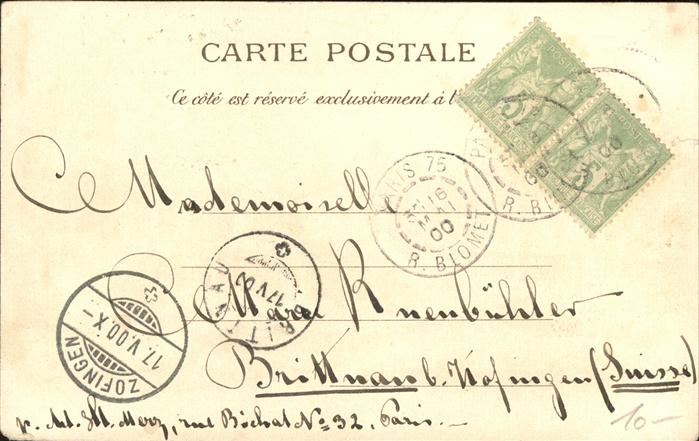 CARTE POSTALE
Ce côté est réservé exclusivement à l'
Mademoiselle
PARIS 75
16 MAI 00
R. BLOMET
Marie Kuenbühler
BRITTNAU
17 V 00
ZOFINGEN
17.V.00.X-
Brittnau b. Zofingen (Suisse)
Merz, rue Bichat No 32, Paris.
10-